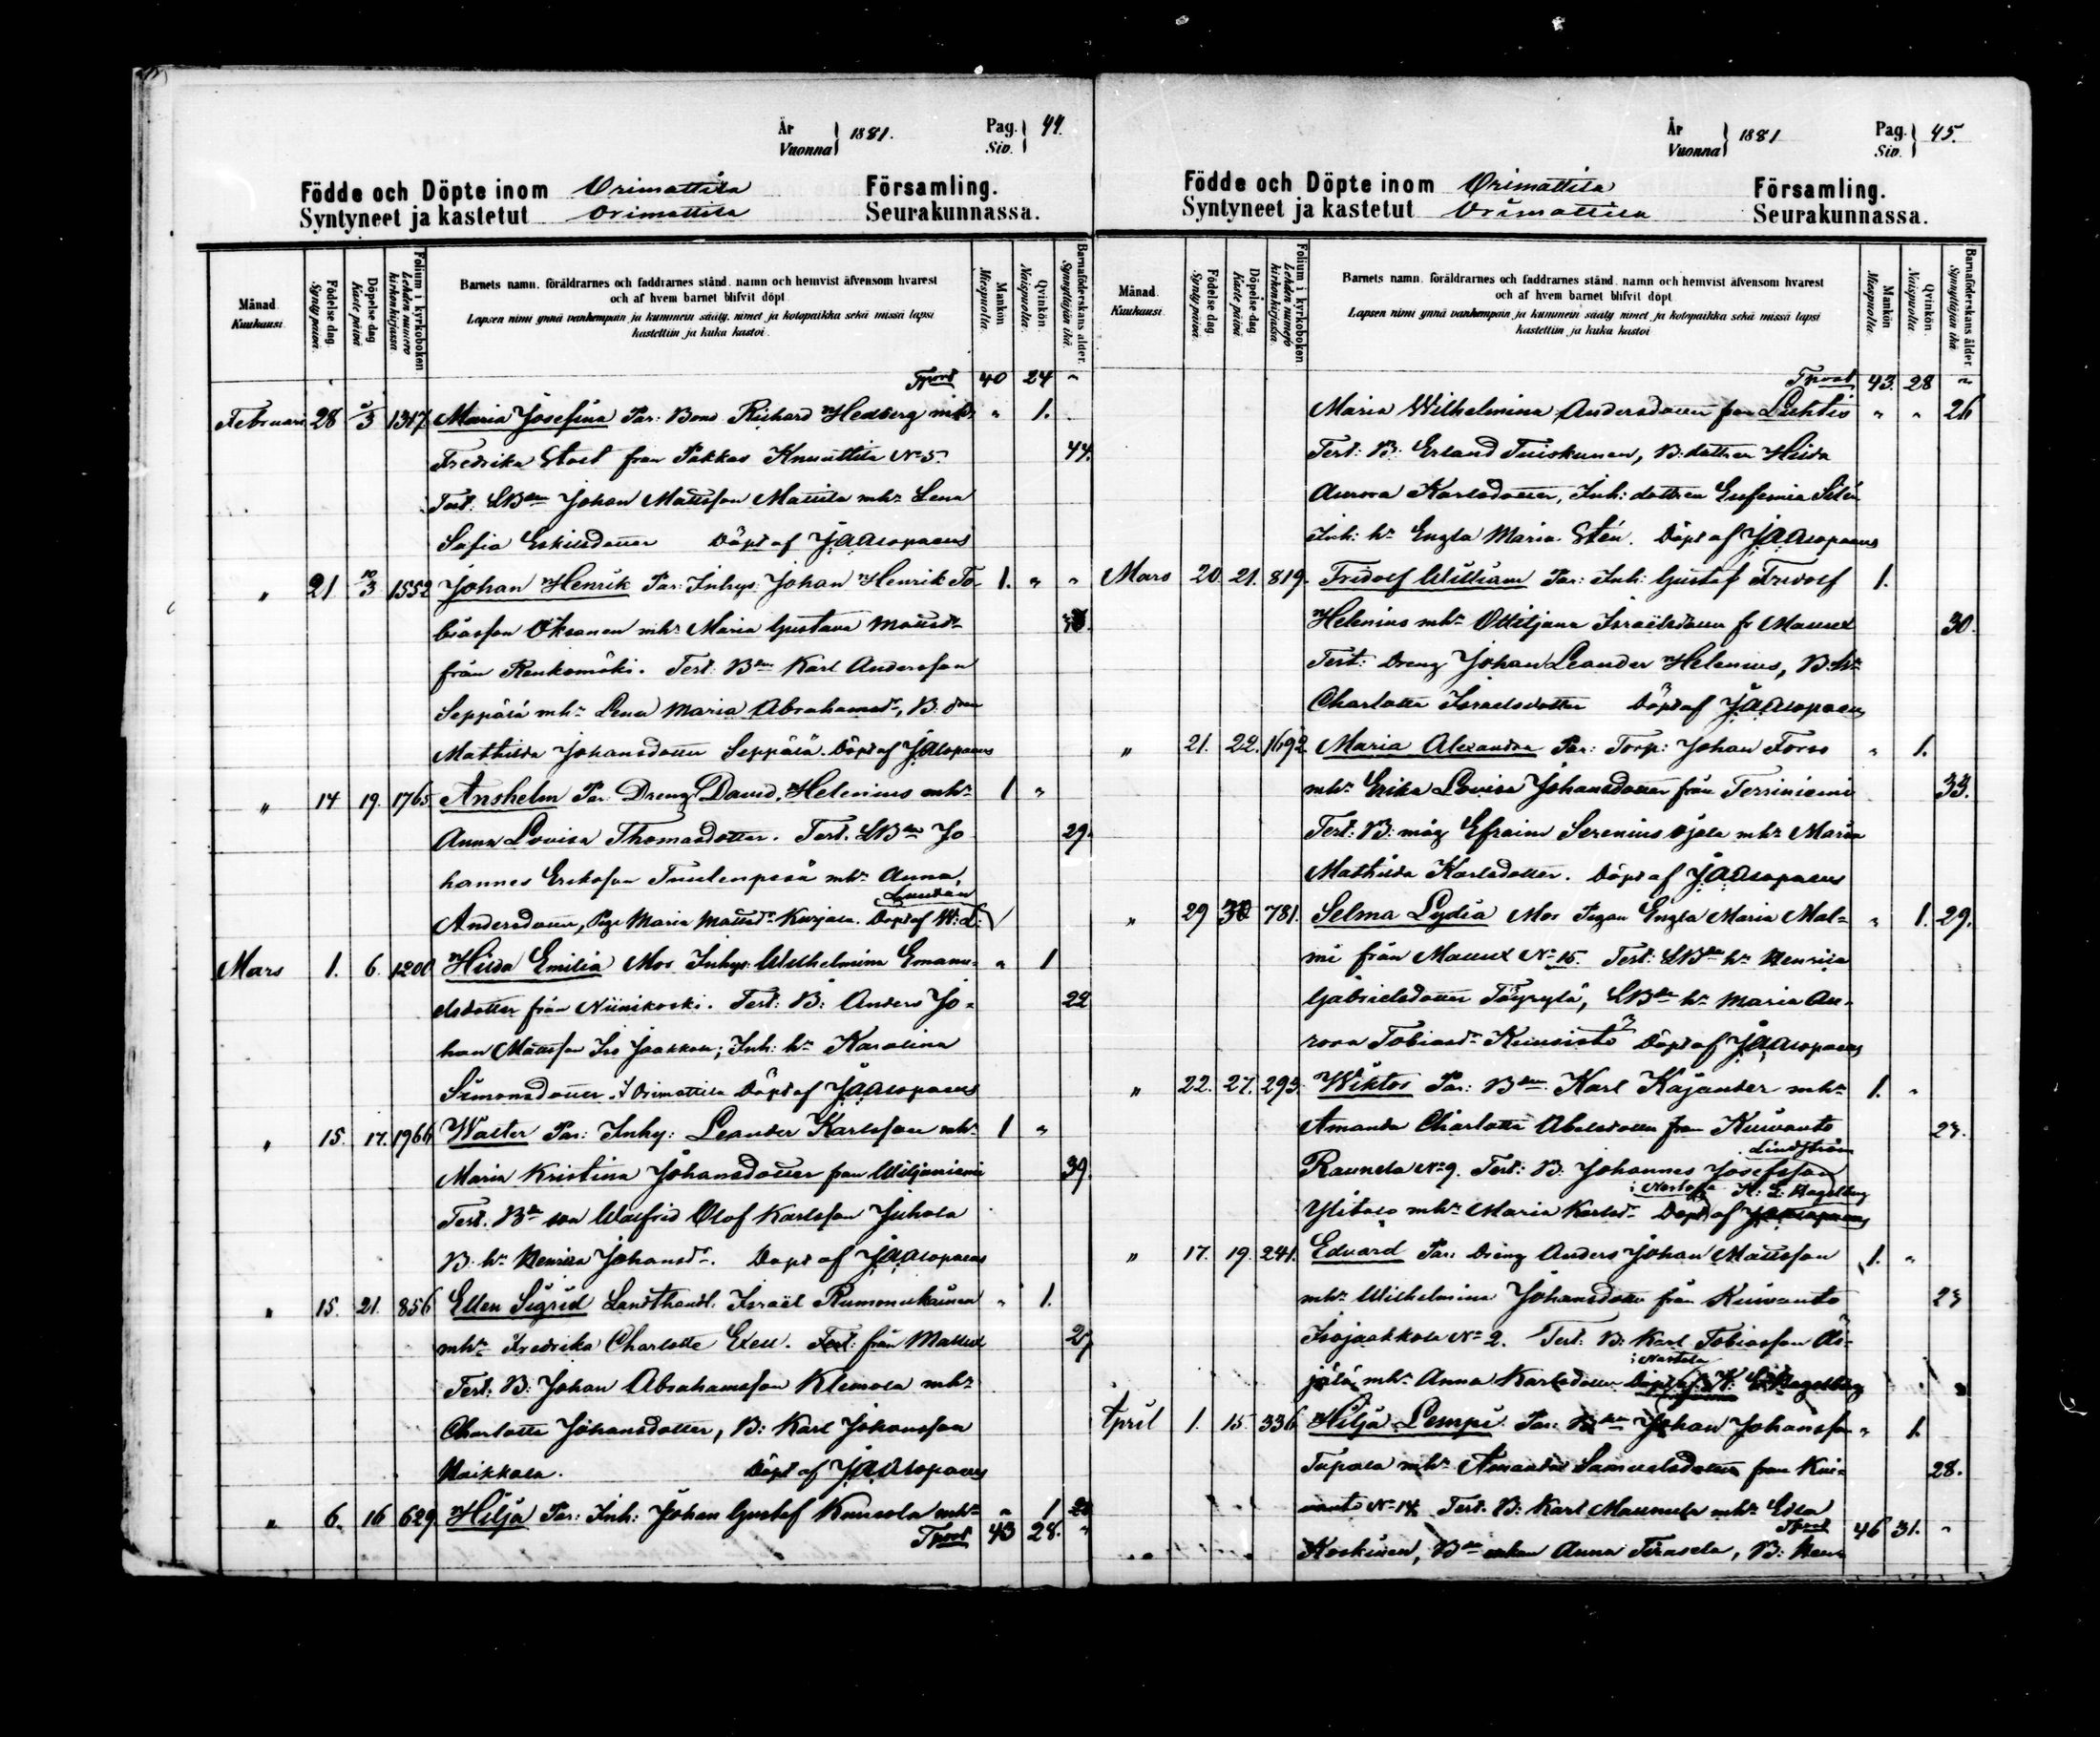 År
Vuonna } 1881. Pag.
Siv. } 44.
Födde och Döpte inom Orimattila Församling.
Syntyneet ja kastetut Orimattila Seurakunnassa.
Månad.
Kuukausi.
Födelse dag.
Synty päivä.
Döpelse dag
Kaste päivä
Folium i kyrkoboken
Lehden numero kirkonkirjassa.
Barnets namn, föräldrarnes och faddrarnes stånd, namn och hemvist äfvensom hvarest
och af hvem barnet blifvit döpt.
Lapsen nimi ynnä vanhempain ja kummein sääty, nimet ja kotopaikka sekä missä lapsi
kastettiin ja kuka kastoi.
Mankön
Miespuolta.
Qvinkön.
Naispuolta.
Barnaföderskans ålder.
Synnyttäjän ikä.
Tport 40 24 "
Februari 28 3 1317 Maria Josefina Par: Bond Richard Hedberg mhr " 1.
Fredrika Stoet från Pakkas Knuuttila No 5. 44.
Test. LBden Johan Mattsson Mattila mhr Lena
Sofia Eskilsdotter Döpt af J.A.Alopaeus
" 21 10/3 1552 Johan Henrik Par: Inhys: Johan Henrik To- 1. " "
biasson Oksanen mhr Maria Gustava Mattsdr
från Renkomäki. Test. Bden Karl Andersson
Seppälä mhr Lena Maria Abrahamsdr, B:
Mathilda Johansdotter Seppälä. Döpt af J.Alopaeus
" 14 19. 1765 Anshelm Par Dreng David Helenius mhr 1 "
Anna Lovisa Thomasdotter. Test. LBden Jo 29.
hannes Eriksson Tuulenpesä mhr Anna
Andersdotter, Pig. Maria Mattsdr Kurjala. Döpt af W: L:
Mars 1. 6. 1200 Hilda Emilia Mor Inhys. Wilhelmina Emanu- " 1
elsdotter från Niinikoski. Test: B: Anders Jo- 22
han Mattsson Iso Jaakkola; Inh: hr Karolina
Simonsdotter. i Orimattila Döpt af J.A.Alopaeus
" 15. 17. 1966 Walter Par: Inhy: Leander Karlsson mhr 1 "
Maria Kristina Johansdotter från Wiljaniemi 39.
Test. Bde son Walfrid Olof Karlsson Juhola
B: hr Henrica Johansdr. Döpt af J.A.Alopaeus
" 15. 21. 856 Ellen Sigrid Landthandl. Israel Rumonukainen " 1.
mhr Fredrika Charlotte Exell. Test: från Mallusi 27
Test. B: Johan Abrahamsson Klemola mhr
Charlotte Johansdotter, B: Karl Johansson
Naikkala. Döpt af J.A.Alopaeus
" 6. 16 629 Hilja Par: Inh: Johan Gustaf mhr " 1
Tport 43 28. "
År
Vuonna } 1881 Pag.
Siv. } 45.
Födde och Döpte inom Orimattila Församling.
Syntyneet ja kastetut Orimattila Seurakunnassa.
Månad.
Kuukausi.
Födelse dag.
Synty päivä.
Döpelse dag
Kaste päivä.
Folium i kyrkoboken
Lehden numero kirkonkirjassa.
Barnets namn, föräldrarnes och faddrarnes stånd, namn och hemvist äfvensom hvarest
och af hvem barnet blifvit döpt.
Lapsen nimi ynnä vanhempain ja kummein sääty nimet ja kotopaikka sekä missä lapsi
kastettiin ja kuka kastoi
Mankön
Miespuolta.
Qvinkön.
Naispuolta.
Barnaföderskans ålder
Synnyttäjän ikä.
Tport 43. 28 "
Maria Wilhelmina Andersdotter från Luhtis " " 26
Test: B: Erland Tuiskunen, B: dottren Hilda
Aurora Karlsdotter, Inh: dottren Eufemia Silén
Inh: hr Engla Maria Stén. Döpt af J.A.Alopaeus
Mars 20. 21. 819. Fridolf William Par: Inh: Gustaf Fridolf 1.
Helenius mhr Ottiljana Israelsdotter fr Mallusi 30.
Test: Dreng Johan Leander Helenius, B: hr
Charlotta Israelsdotter Döpt af J.A.Alopaeus
" 21. 22. 1692. Maria Alexandra Par: Torp: Johan Forss " 1.
mhr Erika Lovisa Johansdotter från Terriniemi 33.
Test: B: måg Efraim Serenius Ojala mhr Maria
Mathilda Karlsdotter. Döpt af J.A.Alopaeus
" 29 30 781. Selma Lydia Mor Pigan Engla Maria Mal- " 1. 29.
mi från Mallusi No 15. Test: LBden hr Henrica
Gabrielsdotter Töyrylä, LBden hr Maria Au-
rora Tobiasdr Döpt af J.A.Alopaeus
" 22. 27. 293. Wiktor Par: Bden Karl Kajander mhr 1. "
Amanda Charlotta Abelsdotter från Kuivanto 27.
Lindström
Raunela No 9. Test: B: Johannes Josefsson
i Nastola K: E: Nagelberg
Ylitalo mhr Maria Karlsdr Döpt af J.A.Alopaeus
" 17. 19. 241. Edvard Par: Dreng Anders Johan Mattsson 1. "
mhr Wilhelmina Johansdotter från Kuivanto 27
Isojaakkola No 2. Test: B: Karl Tobiasson Äi-
i Nastola
jälä mhr Anna Karlsdotter Döpt af K: E: Nagelberg
April 1. 15. 336 Hilja Lempi Par: Bden Johan Johansson " 1.
Tupala mhr Amanda Samuelsdotter från Kui- 28.
vanto No 14 Test. B: Karl Maunula mhr Edla
Tport 46 31. "
Koskinen, Bde enkan Anna Terasela, B: